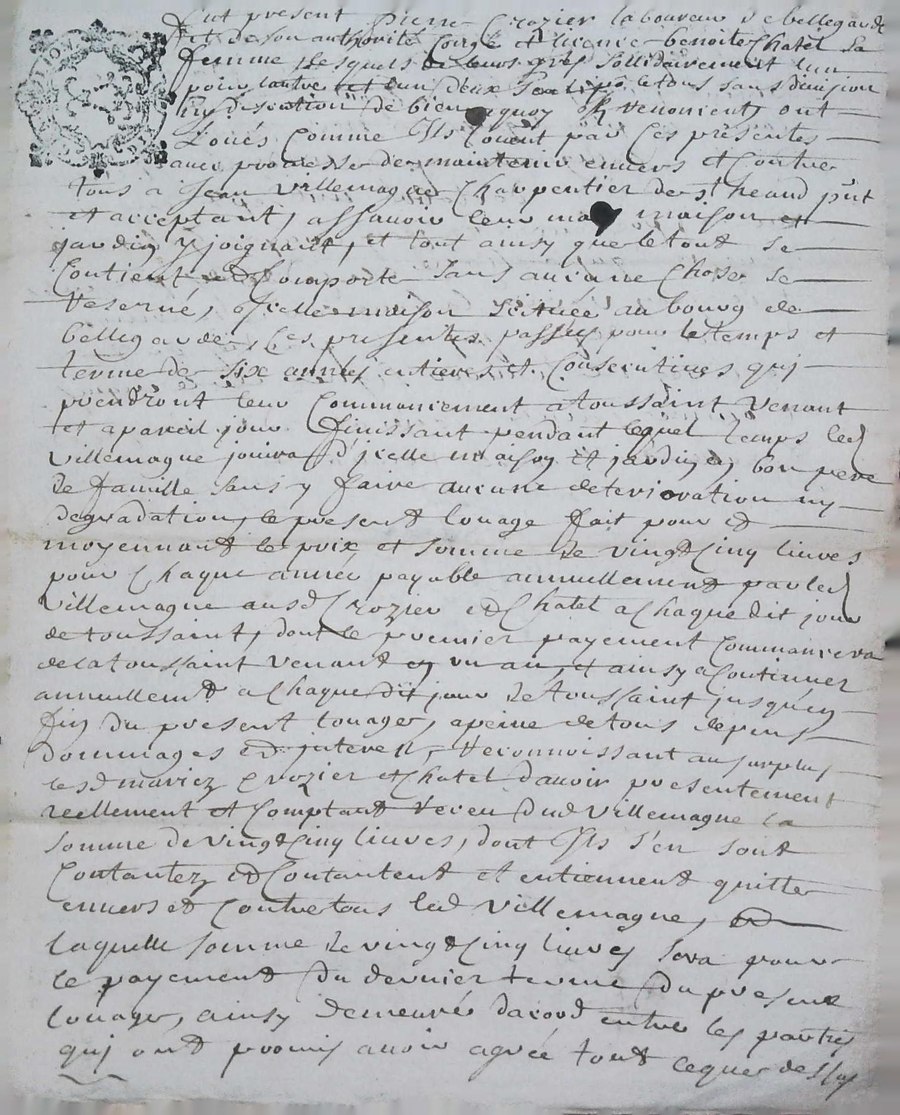 fut present Pierre Crozier laboureur de bellegarde
et de son authorité Congé et licence benoite Chatel sa
femme lesquels de leurs gres sollidairement l'un
pour lautre et un deux seul p. le tous sans division
ny discution de bien quoy Renoncient ont
Loués Comme Ils Louent par Ces presentes
avec promesse de maintenir envers et Contre
tous a Jean Villemagne Charpentier de st heand pnt
et acceptant, assavoir leur maison et
jardin y joignant, et tout ainsy que le tout se
Contient et se Comporte sans aucune Chose se
Reservé, Icelle maison scituée au bourg de
bellegarde, Ces presentes passées pour le temps et
terme de six années entieres et Consecutives quj
prendront leur Commancement a toussaint venant
et a pareil jour finissant pendant lequel temps led
Villemagne jouira d'jcelle maison et jardin en bon pere
de famille sans y faire aucune deterioration ny
degradation, le present louage fait pour et
moyennant le prix et somme de vingt Cinq livres
pour Chaque année payable annuellement par led
Villemagne ausd Crozier et Chatel a Chaque dit jour
de toussaint, dont le premier payement Commancera
de la toussaint venant en un an, et ainsy a Continuer
annuellemt a Chaque dit jour de toussaint jusqu'en
fin du present louage, a peine de tous depens
dommages et jnterest, Reconnoissant au surplus
lesd mariez Crozier et Chatel d'avoir presentement
reellement et Comptant Receu dud Villemagne la
somme de vingt Cinq livres, dont Ils s'en sont
Contantez et Contantent et en tiennent quitte
envers et Contre tous led Villemagne,
laquelle somme de vingt Cinq livres sera pour
le payement du dernier terme du present
louage, ainsy demeuré dacord entre les parties
quj ont promis avoir agreé tout ceque dessus